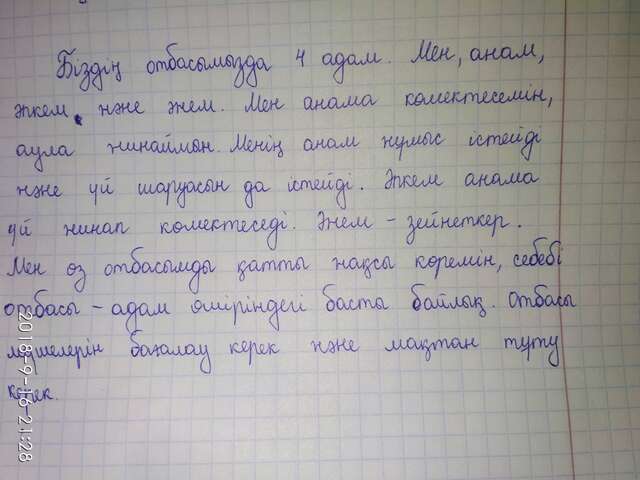 Біздің отбасымызда 4 адам. Мен, анам,
әпкем және әжем. Мен анама көмектесемін,
аула жинаймын. Менің анам жұмыс істейді
және үй шаруасын да істейді. Әпкем анама
үй жинап көмектеседі. Әжем - зейнеткер.
Мен өз отбасымды қатты жақсы көремін, себебі
отбасы - адам өміріндегі басты байлық. Отбасы
мүшелерін бағалау керек және мақтан тұту
керек.
2018-9-16-21:28